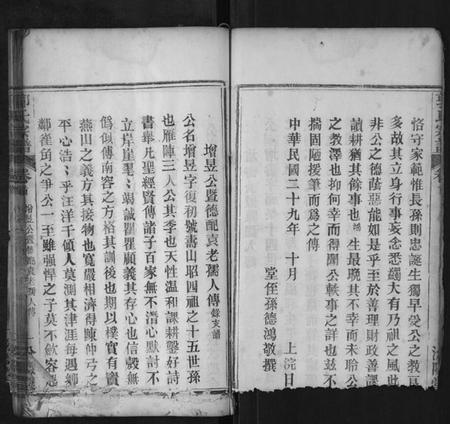 恪守家範惟長孫則忠誕生獨早受公之教
多故其立身行事妄念悉蠲大有乃祖之風此
非公之德蔭惡能如是乎至於善理財政善課
讀耕猶其餘事也 生最晚其不幸而未聆公
之教澤也抑何幸而得聞公軼事之詳也玆不
揣固陋援筆而爲之傳
中華民國二十九年 十月 上浣日
堂侄孫德鴻敬撰
增昱公暨德配袁老孺人傳
公名增昱字復初號壽山昭四祖之十五世孫
也雁陣三人公其季也天性溫和課耕鑿好詩
書舉凡聖經賢傳諸子百家無不潛心默討不
立岸崖眾竭誠瞿瞿顧義其存心也信穀無
僞似傳南容之方格其訓後也期以樸實有竇
燕山之義方其接物也寬嚴相濟得陳仲弓之
平心浩浩乎汪洋千頃人莫測其津涯每遇鄉
鄰雀角之爭公一至雖強悍之子莫不斂容